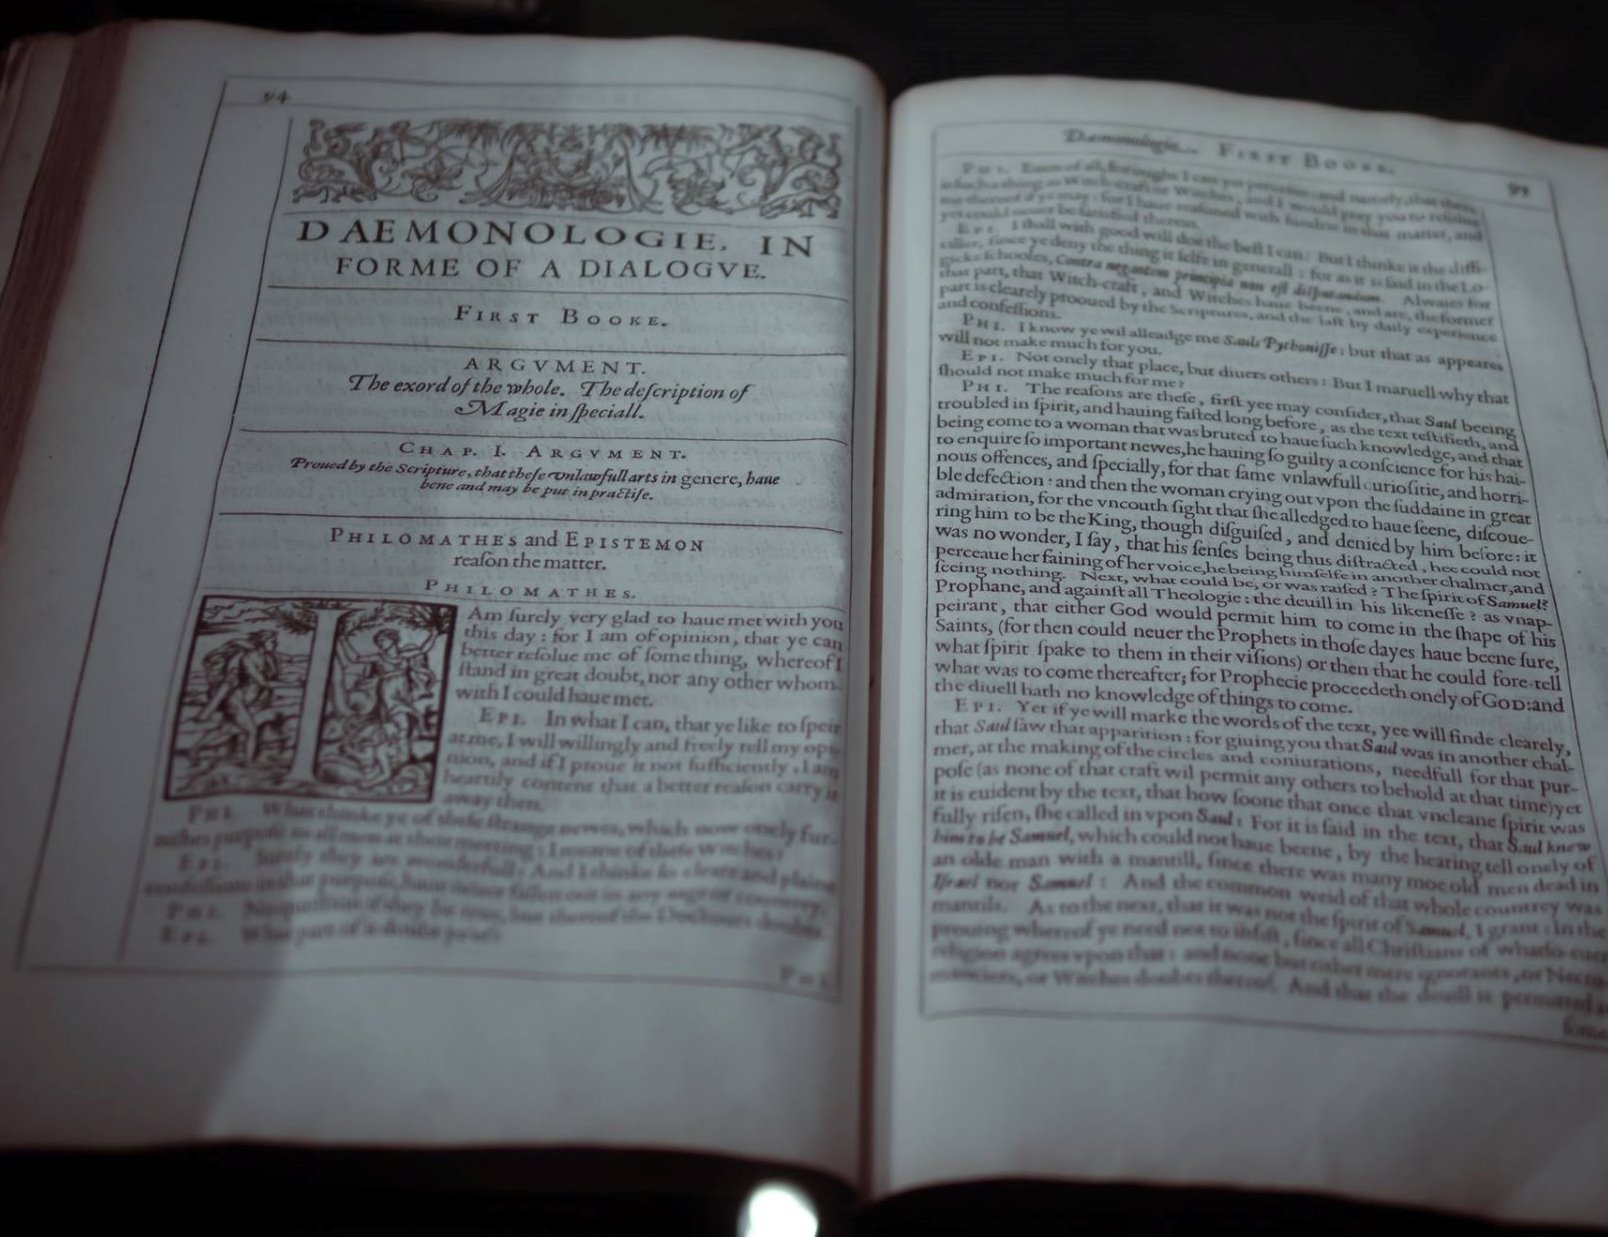 94
DAEMONOLOGIE, IN
FORME OF A DIALOGVE.
FIRST BOOKE.
ARGVMENT.
The exord of the whole. The deſcription of
Magie in ſpeciall.
CHAP. I. ARGVMENT.
Proued by the Scripture, that theſe vnlawfull arts in genere, haue
bene and may be put in practiſe.
PHILOMATHES and EPISTEMON
reaſon the matter.
PHILOMATHES.
I Am ſurely very glad to haue met with you
this day: for I am of opinion, that ye can
better reſolue me of ſome thing, whereof I
ſtand in great doubt, nor any other whom-
with I could haue met.
EPI. In what I can, that ye like to ſpeir
at me, I will willingly and freely tell my opi-
nion, and if I proue it not ſufficiently, I am
heartily content that a better reaſon carry it
away then.
PHI. What thinke ye of theſe ſtrange newes, which now onely fur-
niſhes purpoſe to all men at their meeting: I meane of theſe Witches?
EPI. Surely they are wonderfull: And I thinke ſo cleare and plaine
confeſſions in that purpoſe, haue neuer fallen out in any age or countrey.
PHI. No queſtion if they be true, but thereof the Doctours doubts.
EPI. What part of it doubt ye of?
PHI.
Dæmonologie. FIRST BOOKE. 95
PHI. Euen of all, for ought I can yet perceiue: and namely, that there
is ſuch a thing as Witch-craft or Witches, and I would pray you to reſolue
me thereof if ye may: for I haue reaſoned with ſundrie in that matter, and
yet could neuer be ſatiſfied therein.
EPI. I ſhall with good will doe the beſt I can: But I thinke it the diffi-
ciller, ſince ye deny the thing it ſelfe in generall: for as it is ſaid in the Lo-
gicke ſchooles, Contra negantem principia non eſt diſputandum. Alwaies for
that part, that Witch-craft, and Witches haue beene, and are, the former
part is clearely prooued by the Scriptures, and the laſt by daily experience
and confeſſions.
PHI. I know ye wil alleadge me Sauls Pythoniſſe: but that as appeares
will not make much for you.
EPI. Not onely that place, but diuers others: But I maruell why that
ſhould not make much for me?
PHI. The reaſons are theſe, firſt yee may conſider, that Saul beeing
troubled in ſpirit, and hauing faſted long before, as the text teſtifieth, and
being come to a woman that was bruted to haue ſuch knowledge, and that
to enquire ſo important newes, he hauing ſo guilty a conſcience for his hai-
nous offences, and ſpecially, for that ſame vnlawfull curioſitie, and horri-
ble defection: and then the woman crying out vpon the ſuddaine in great
admiration, for the vncouth ſight that ſhe alledged to haue ſeene, diſcoue-
ring him to be the King, though diſguiſed, and denied by him before: it
was no wonder, I ſay, that his ſenſes being thus diſtracted, hee could not
perceaue her faining of her voice, he being himſelfe in another chalmer, and
ſeeing nothing. Next, what could be, or was raiſed? The ſpirit of Samuel?
Prophane, and againſt all Theologie: the deuill in his likeneſſe? as vnap-
peirant, that either God would permit him to come in the ſhape of his
Saints, (for then could neuer the Prophets in thoſe dayes haue beene ſure,
what ſpirit ſpake to them in their viſions) or then that he could fore-tell
what was to come thereafter; for Prophecie proceedeth onely of GOD: and
the diuell hath no knowledge of things to come.
EPI. Yet if ye will marke the words of the text, yee will finde clearely,
that Saul ſaw that apparition: for giuing you that Saul was in another chal-
mer, at the making of the circles and coniurations, needfull for that pur-
poſe (as none of that craft wil permit any others to behold at that time) yet
it is euident by the text, that how ſoone that once that vncleane ſpirit was
fully riſen, ſhe called in vpon Saul: For it is ſaid in the text, that Saul knew
him to be Samuel, which could not haue beene, by the hearing tell onely of
an olde man with a mantill, ſince there was many moe old men dead in
Iſrael nor Samuel: And the common weid of that whole countrey was
mantils. As to the next, that it was not the ſpirit of Samuel, I grant: In the
prouing whereof ye need not to inſiſt, ſince all Chriſtians of whatſo-euer
religion agrees vpon that: and none but either mere ignorants, or Necro-
manciers, or Witches doubts thereof. And that the diuell is permitted at
ſome